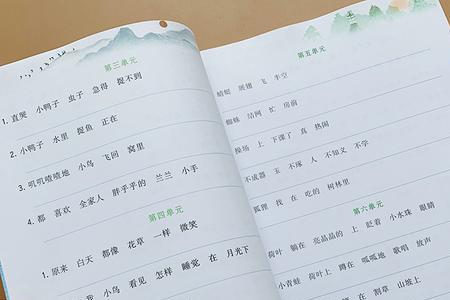 第三单元
1. 直哭 小鸭子 虫子 急得 捉不到
2. 小鸭子 水里 捉鱼 正在
3. 叽叽喳喳地 小鸟 飞回 窝里
4. 都 喜欢 全家人 胖乎乎的 兰兰 小手
第四单元
1. 原来 白天 都像 花草 一样 微笑
我 小鸟 看见 怎样 睡觉 在 月光下
第五单元
蜻蜓 展翅 飞 半空
蜘蛛 结网 忙 房前
操场 上 下课了 真 热闹
不成器 玉 不琢 人 不知义 不学
狐狸 找 在 吃的 树林里
第六单元
荷叶 躺在 亮晶晶的 上 眨着 小水珠 眼睛
小青蛙 荷叶上 蹲在 呱呱地 歌唱 放声
在 割草 山坡上